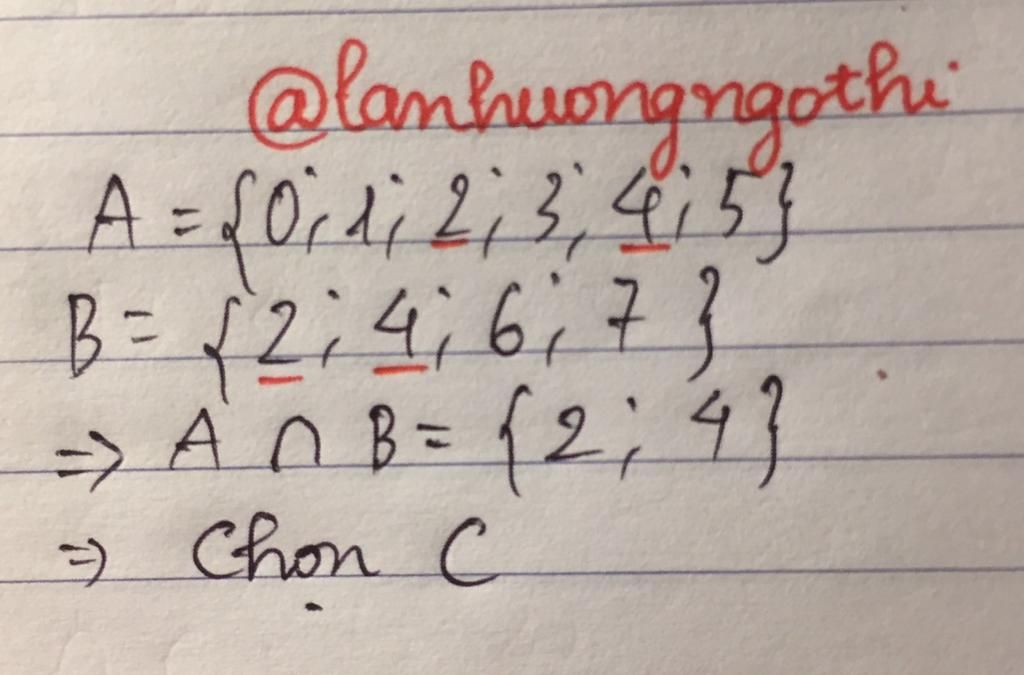 @lanhuongngothi
A = {0; 1; 2; 3; 4; 5}
B = {2; 4; 6; 7}
=> A ∩ B = {2; 4}
=> Chọn C